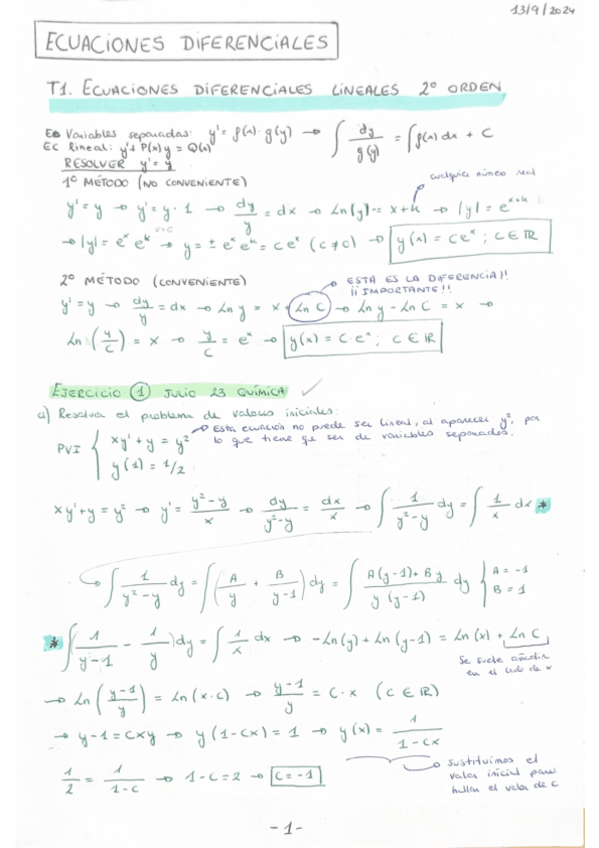 13/9/2024
ECUACIONES DIFERENCIALES
T1. ECUACIONES DIFERENCIALES LINEALES 2º ORDEN
Variables separadas: y' = f(x)·g(y) → ∫ dy/g(y) = ∫ f(x) dx + C
EC lineal: y' + P(x) y = Q(x)
RESOLVER y' = y
1º MÉTODO (NO CONVENIENTE)
cualquier número real
y' = y → y' = y·1 → dy/y = dx → Ln(y) = x + k → |y| = e^(x+k)
→ |y| = e^x e^k → y = ± e^x e^k = c e^x (c ≠ 0) → y(x) = C e^x ; C ∈ ℝ
2º MÉTODO (CONVENIENTE)
ESTA ES LA DIFERENCIA!!
¡¡IMPORTANTE!!
y' = y → dy/y = dx → Ln y = x + Ln C → Ln y - Ln C = x →
Ln (y/C) = x → y/C = e^x → y(x) = C e^x ; C ∈ ℝ
EJERCICIO ① JULIO 23 QUÍMICA ✓
a) Resolver el problema de valores iniciales:
Esta ecuación no puede ser lineal, al aparecer y², por
lo que tiene que ser de variables separadas.
PVI { xy' + y = y²
y(1) = 1/2
xy' + y = y² → y' = (y²-y)/x → dy/(y²-y) = dx/x → ∫ 1/(y²-y) dy = ∫ 1/x dx *
→ ∫ 1/(y²-y) dy = ∫ (A/y + B/(y-1)) dy = ∫ (A(y-1) + By)/(y(y-1)) dy { A = -1
B = 1
* ∫ (1/(y-1) - 1/y) dy = ∫ 1/x dx → -Ln(y) + Ln(y-1) = Ln(x) + Ln C
Se suele añadir
en el lado de x
→ Ln((y-1)/y) = Ln(x·C) → (y-1)/y = C·x (C ∈ ℝ)
→ y-1 = Cxy → y(1-Cx) = 1 → y(x) = 1/(1-Cx)
1/2 = 1/(1-C) → 1-C = 2 → C = -1
sustituimos el
valor inicial para
hallar el valor de C
-1-